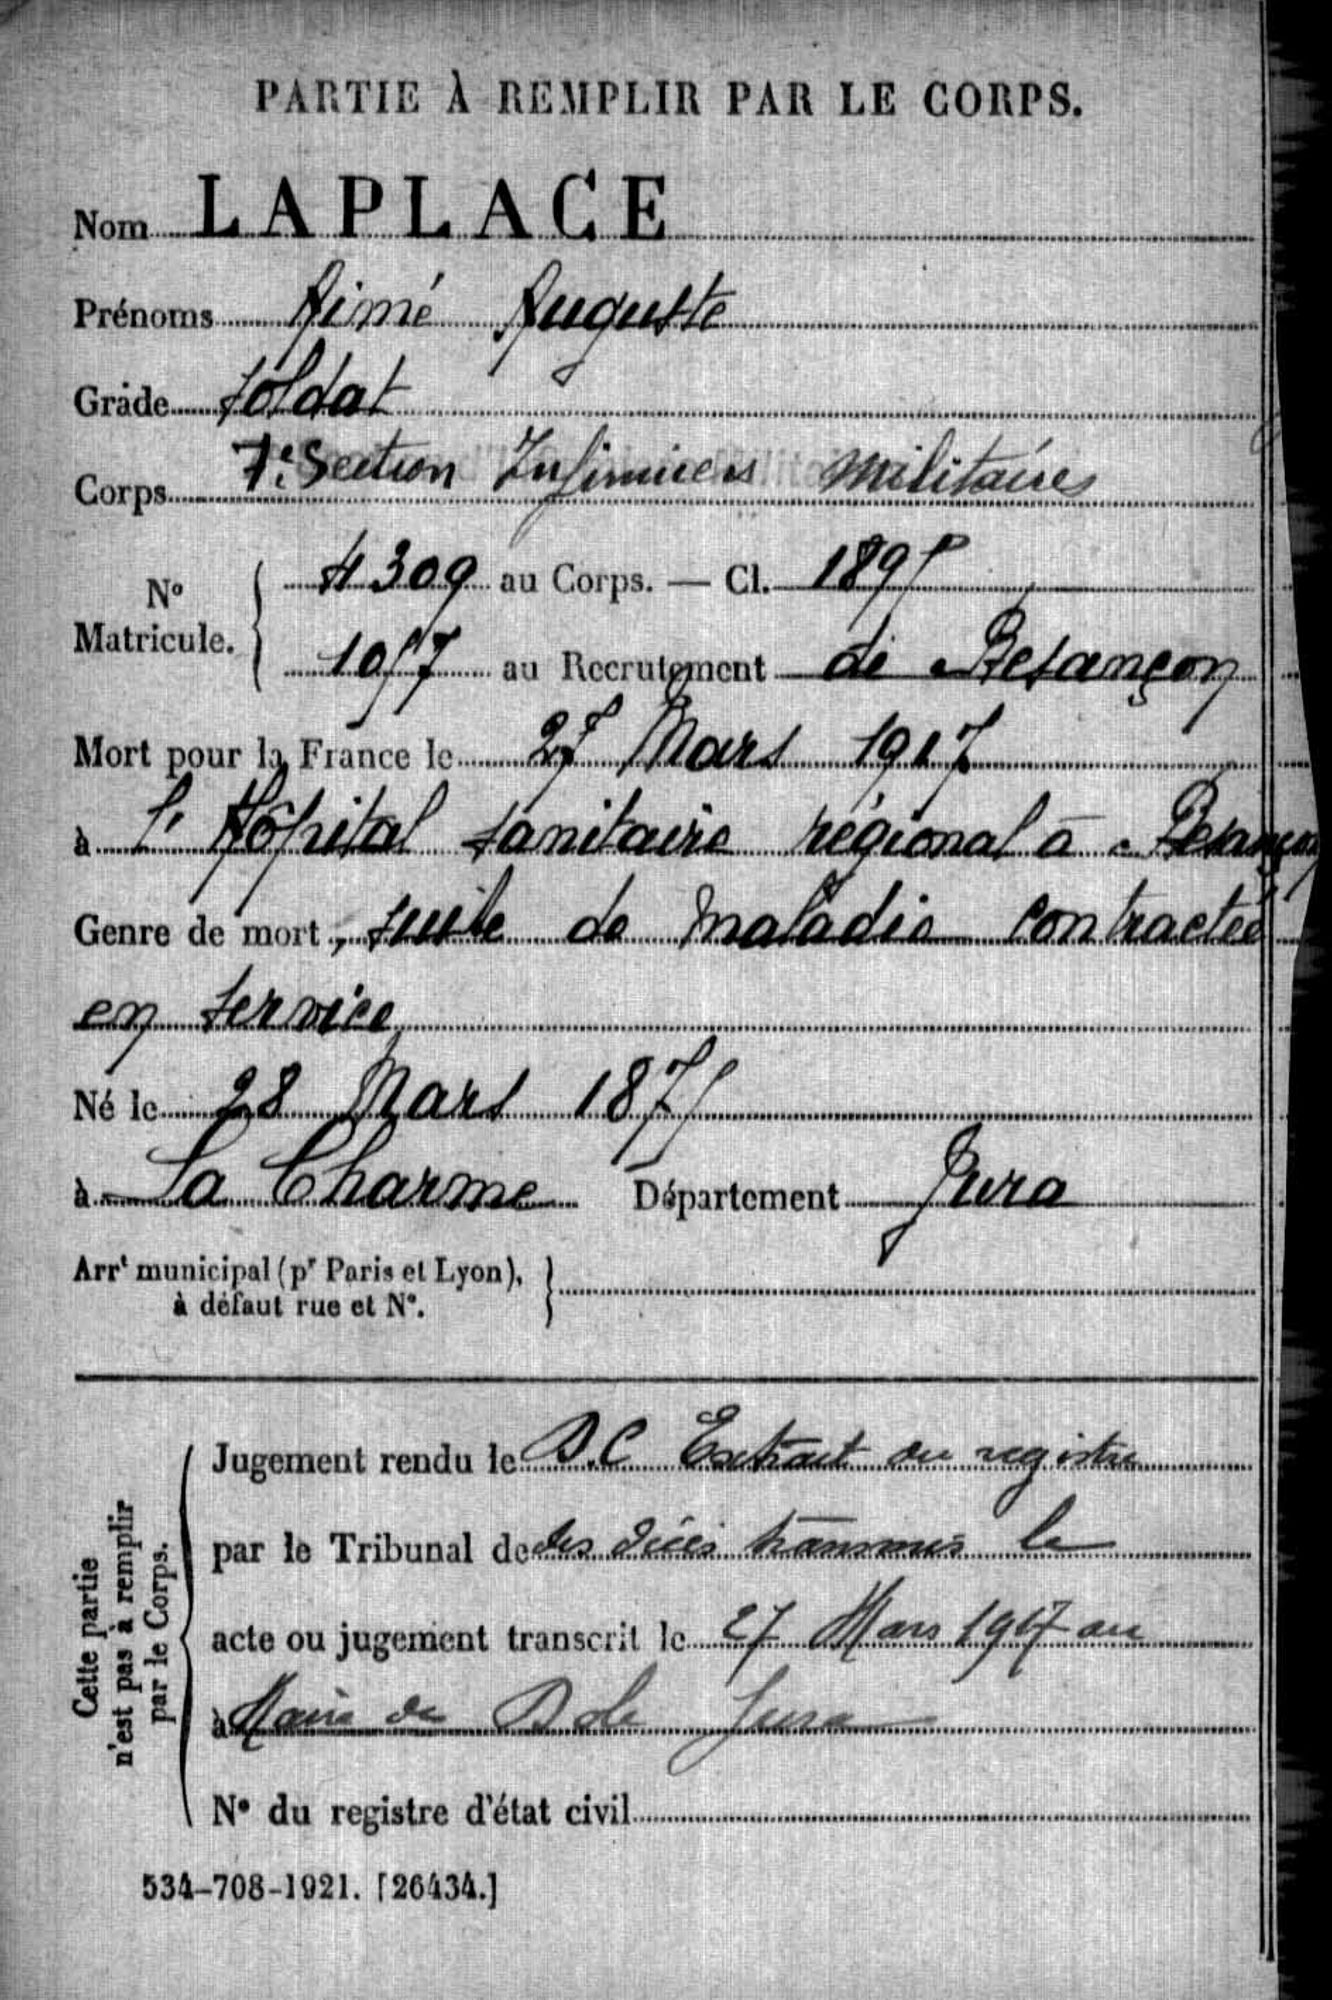 PARTIE À REMPLIR PAR LE CORPS.
Nom LAPLACE
Prénoms Aimé Auguste
Grade Soldat
Corps 7e Section Infirmiers Militaires
No Matricule. 4309 au Corps. — Cl. 1895
1057 au Recrutement de Besançon
Mort pour la France le 27 Mars 1917
à l'Hôpital sanitaire régional à Besançon
Genre de mort, suite de maladie contractée
en service
Né le 28 Mars 1875
à La Charme Département Jura
Arrt municipal (pr Paris et Lyon),
à défaut rue et No.
Cette partie
n'est pas à remplir
par le Corps.
Jugement rendu le D.C Extrait du registre
par le Tribunal de des décès transmis le
acte ou jugement transcrit le 27 Mars 1917 au
à Maire de Dole Jura
No du registre d'état civil
534-708-1921. [26434.]